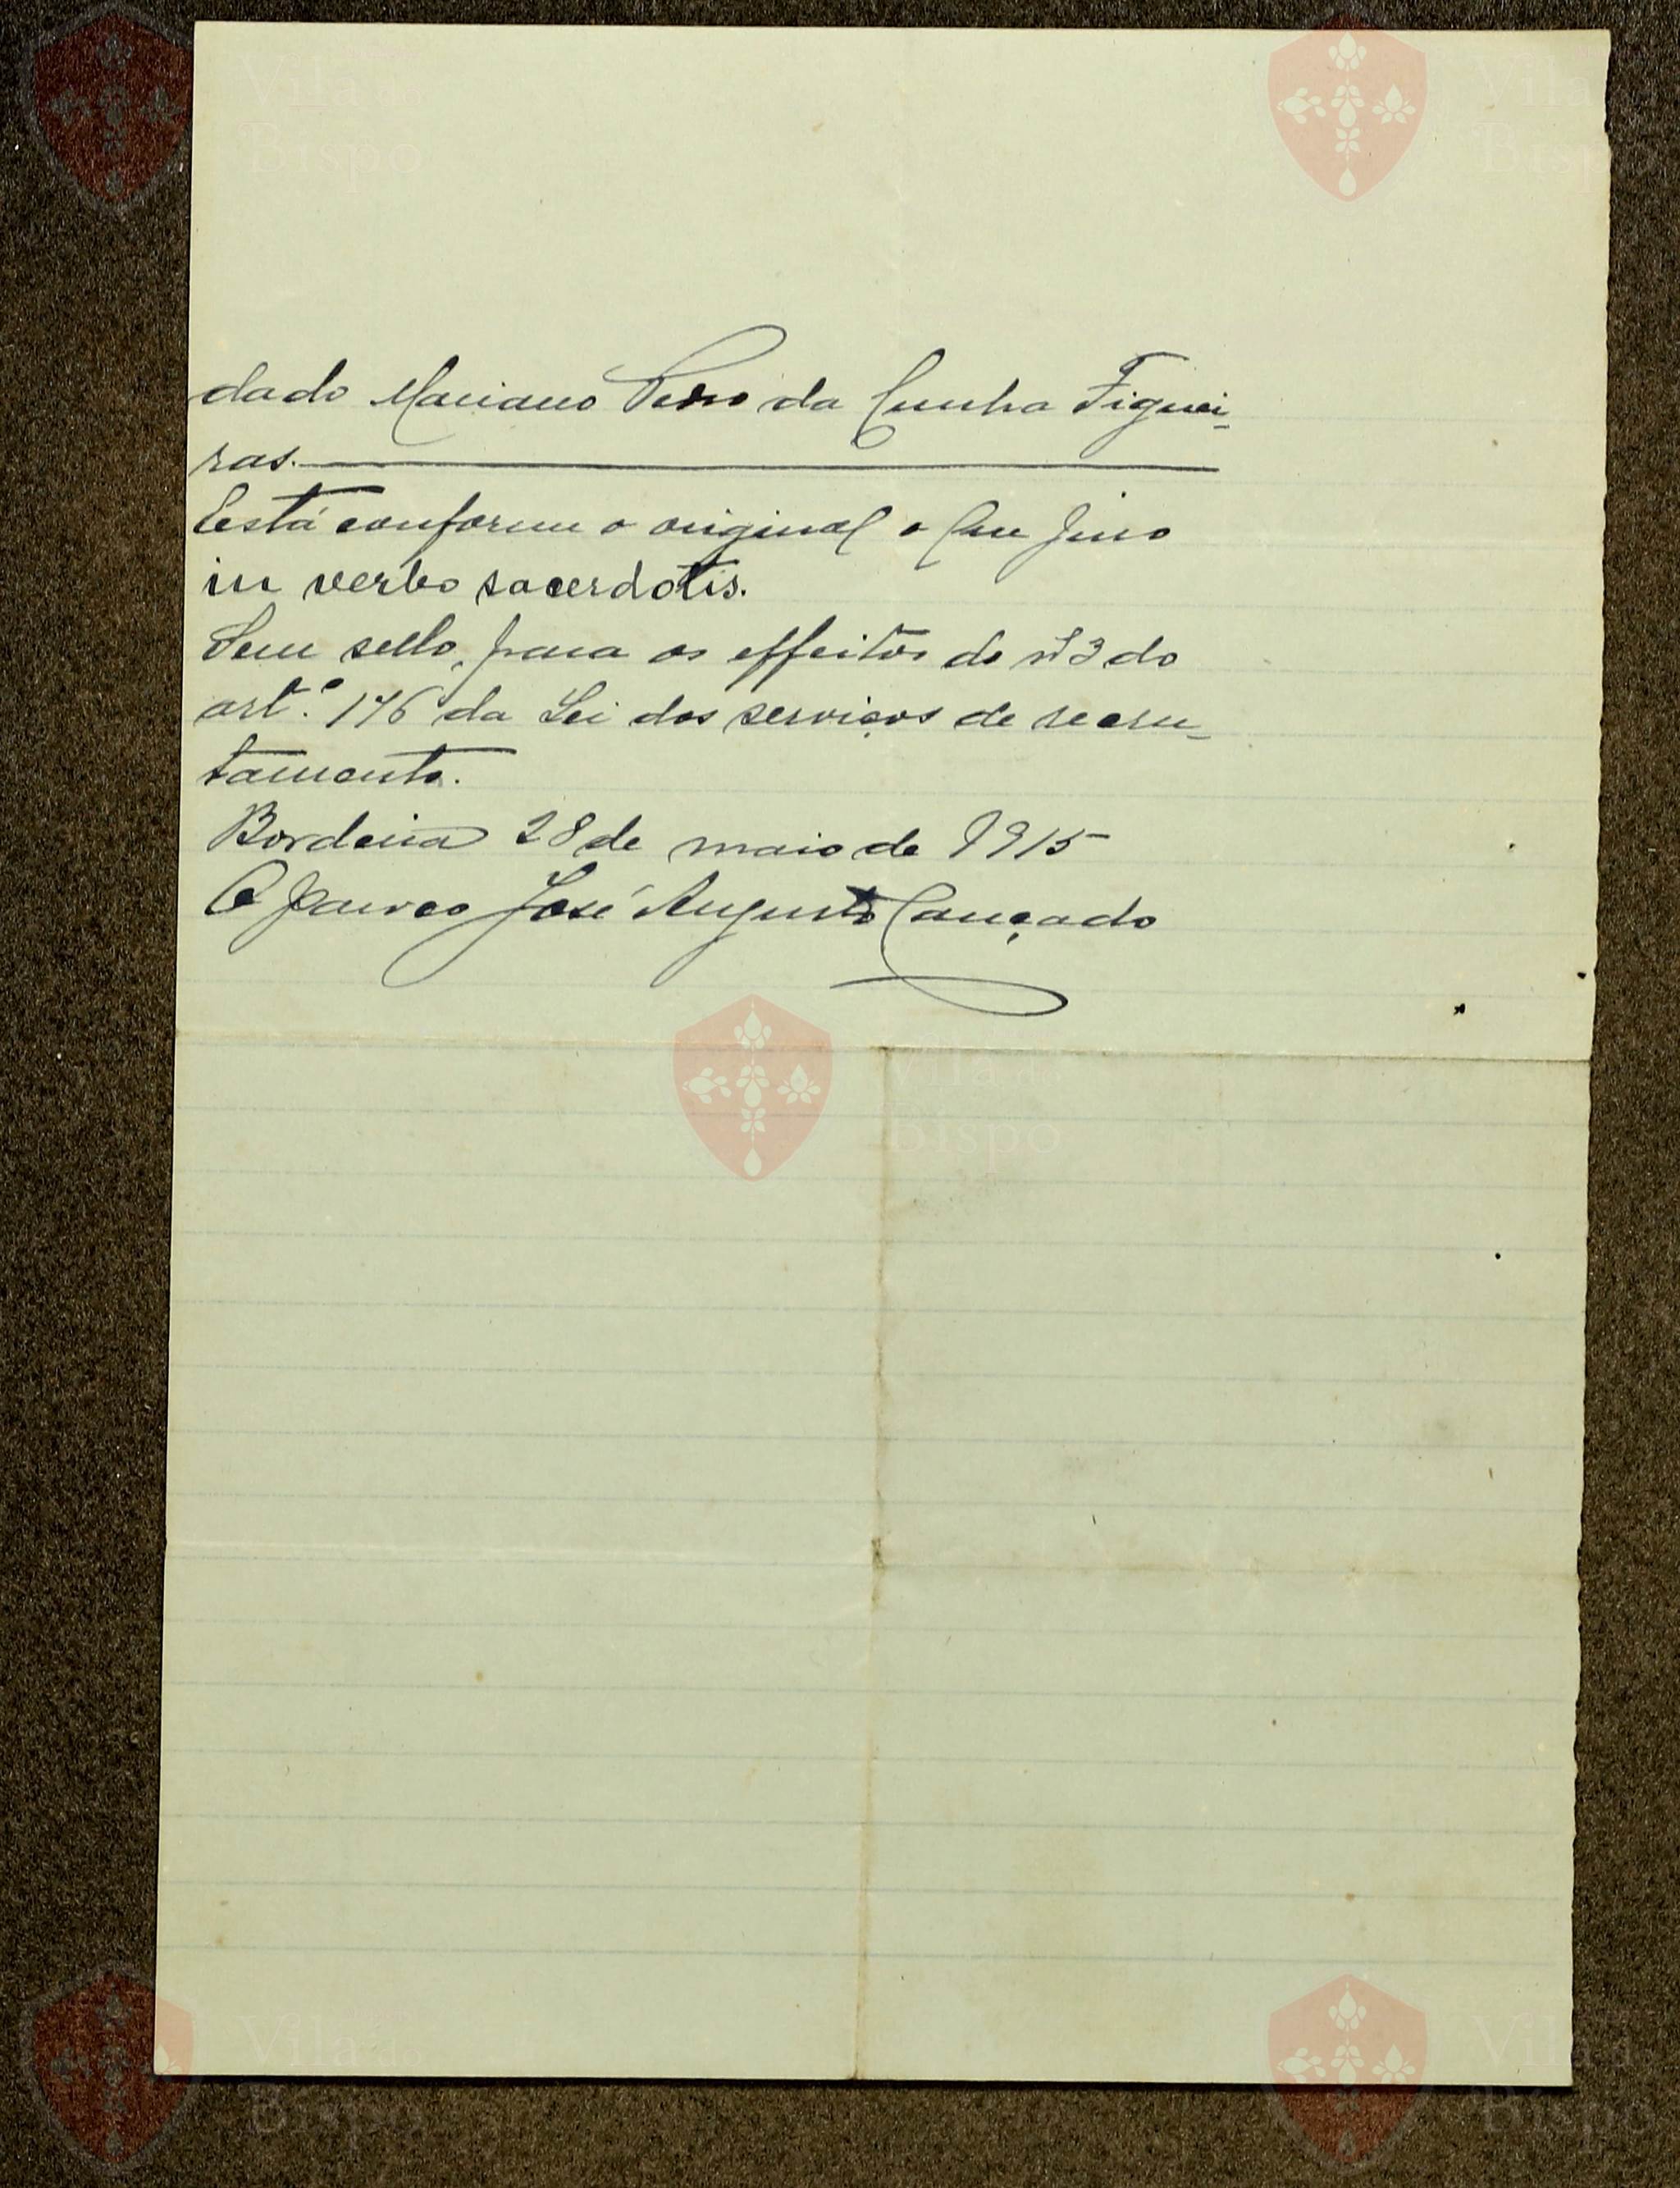 dado Mariano Pedro da Cunha Figuei-
ras.
Está conforme o original o que juro
in verbo sacerdotis.
Sem sello, para os effeitos do nº 3 do
artº. 176 da Lei dos serviços de recru-
tamento.
Bordeira 28 de maio de 1915
O parocho José Augusto Cançado
Vila do
Bispo
Vila
Bispo
Vila do
Bispo
Vila do
Bispo
Vila do
Bispo